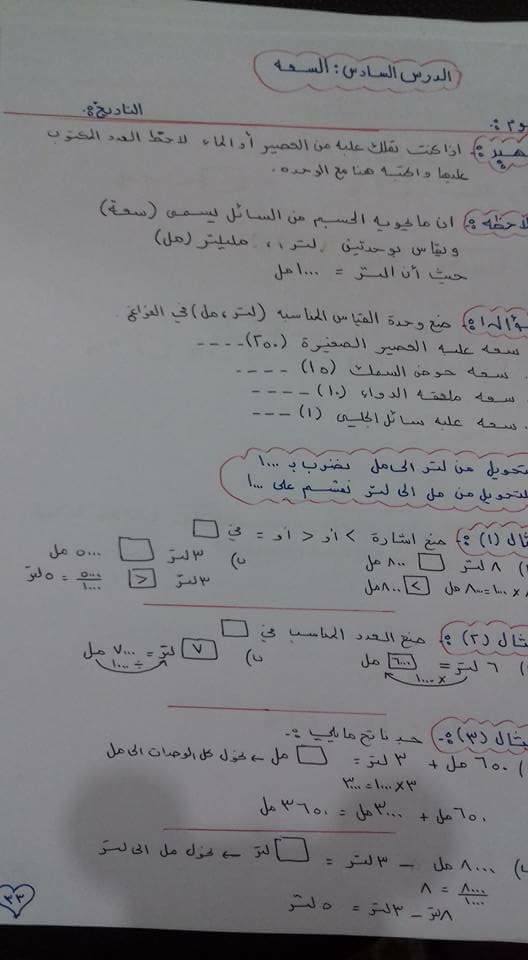 الدرس السادس : السعه
وم :
التاريخ :
هيد : اذا كنت تملك علبه من العصير أو الماء لاحظ العدد المكتوب
عليها واكتبه هنا مع الوحده .
لاحظه : ان ما يحويه الجسم من السائل يسمى (سعة)
وتقاس بوحدتين لتر ، مليلتر (مل)
حيث أن اللتر = ١٠٠٠ مل
ؤال ١ : ضع وحدة القياس المناسبه (لتر ، مل) في الفراغ .
سعه علبه العصير الصغيرة (٢٥٠) ----
سعه حوض السمك (١٥) ----
سعه ملعقه الدواء (١٠) ----
سعه علبه سائل الجلي (١) ---
تحويل من لتر الى مل نضرب بـ ١٠٠٠
للتحويل من مل الى لتر نقسم على ١٠٠٠
ثال (١) : ضع اشارة > أو < أو = في □
٨ لتر □ ٨٠٠ مل
ب) ٣ لتر □ ٥٠٠٠ مل
٨ × ١٠٠٠ = ٨٠٠٠ مل > ٨٠٠ مل
٣ لتر < ٥٠٠٠/١٠٠٠ = ٥ لتر
ثال (٢) : ضع العدد المناسب في □
٦ لتر = ٦٠٠٠ مل
× ١٠٠٠
ب) ٧ لتر = ٧٠٠٠ مل
÷ ١٠٠٠
ثال (٣) : جد ناتج ما يلي :
٦٥٠ مل + ٣ لتر = □ مل ← نحول كل الوحدات الى مل
٣ × ١٠٠٠ = ٣٠٠٠
٦٥٠ مل + ٣٠٠٠ مل = ٣٦٥٠ مل
ب) ٨٠٠٠ مل - ٣ لتر = □ لتر ← نحول مل الى لتر
٨٠٠٠/١٠٠٠ = ٨
٨ لتر - ٣ لتر = ٥ لتر
٣٣